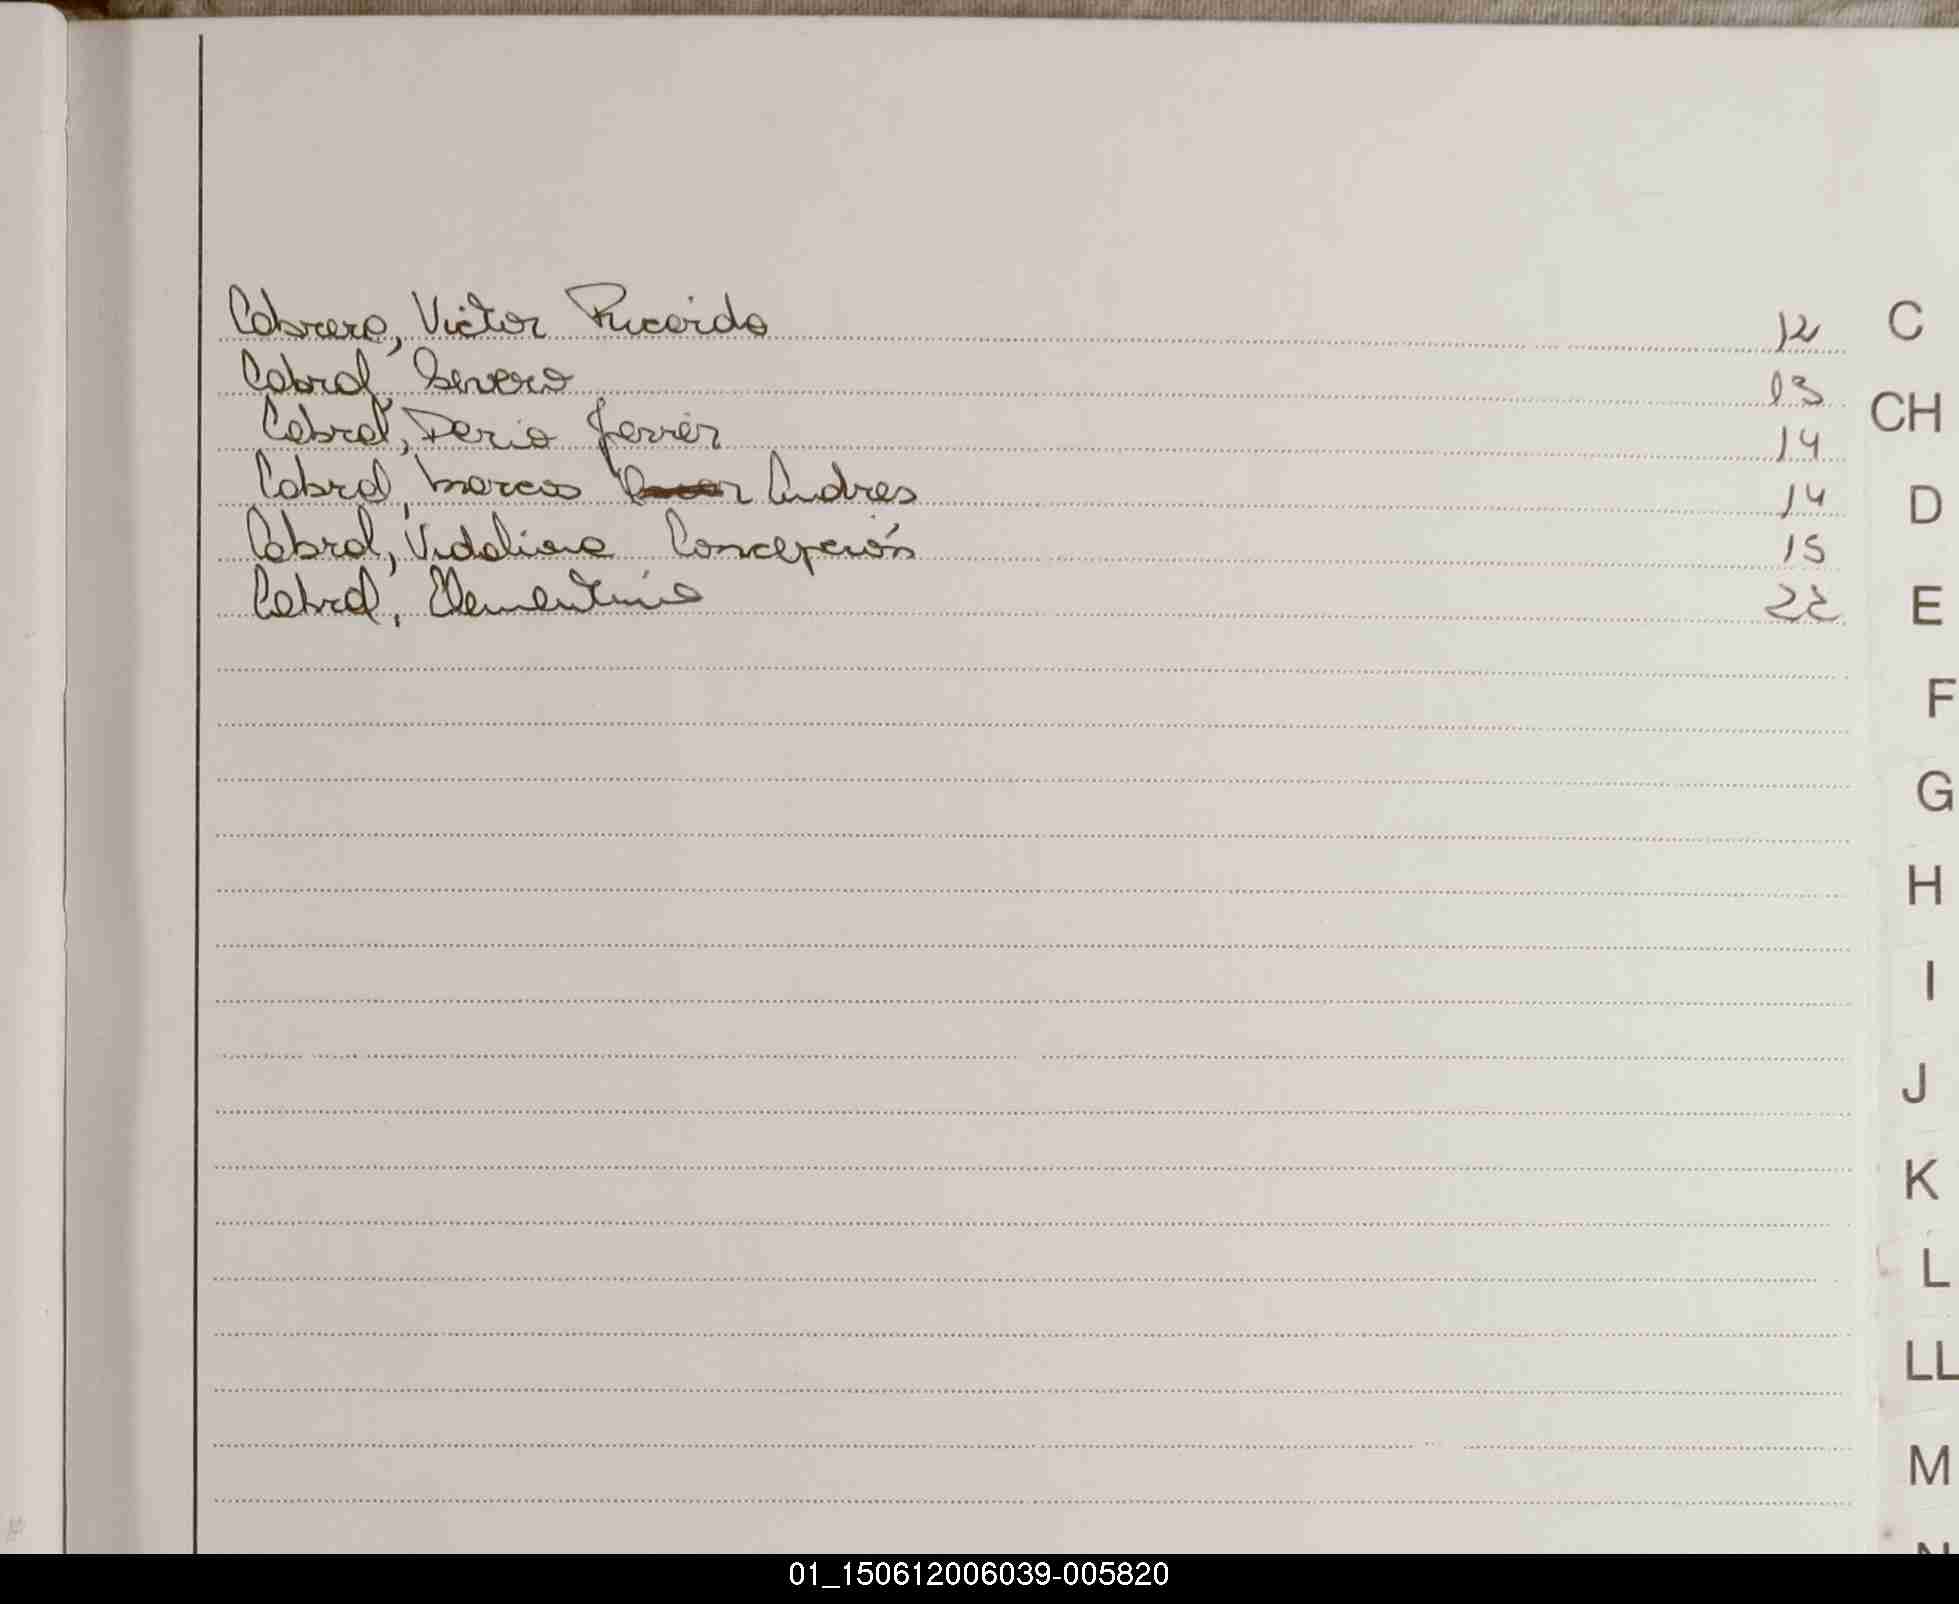 Cabrera, Victor Ricardo 12 C
Cabral, Severo 13
Cabral, Dario Javier 14 CH
Cabral, Marcos Andres 14 D
Cabral, Vidalina Concepción 15
Cabral, Clementina 22 E
F
G
H
I
J
K
L
LL
M
N
01_150612006039-005820